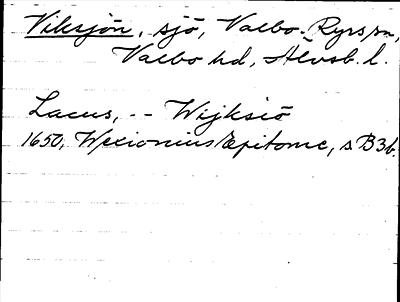 Viksjön, sjö, Valbo-Ryrs sn,
Valbo hd, Älvsb. l.
Lacus, -- Wijksiö
1650, Wexionius Epitome, s B3b.